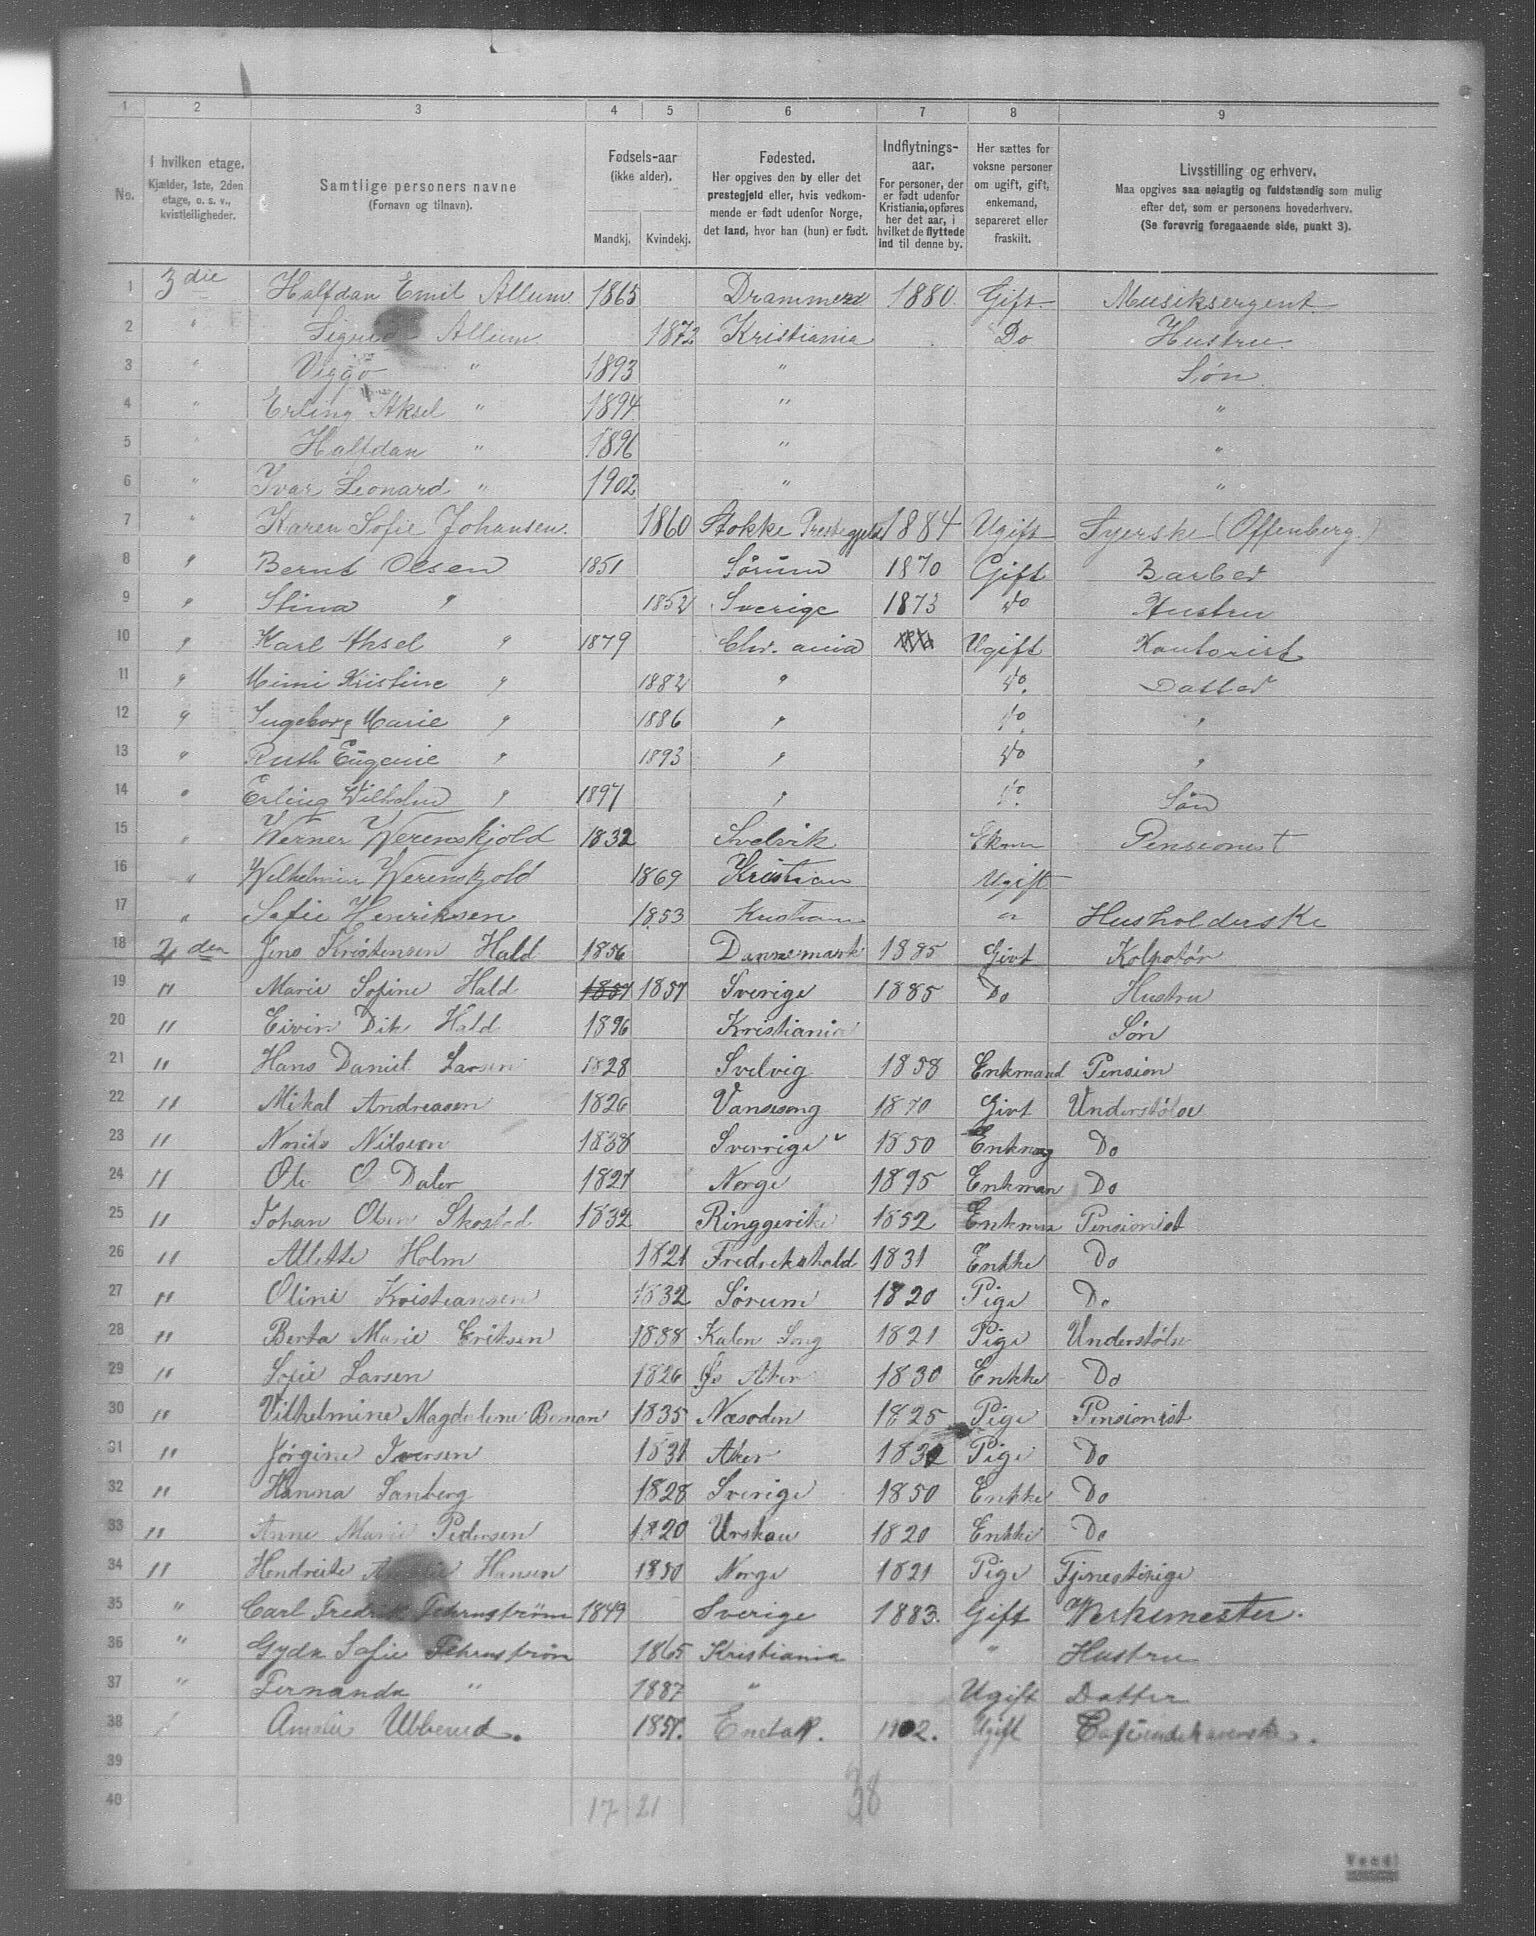 1 2 3 4 5 6 7 8 9
No.
I hvilken etage.
Kjælder, 1ste, 2den
etage, o. s. v.,
kvistleiligheder.
Samtlige personers navne
(Fornavn og tilnavn).
Fødsels-aar
(ikke alder).
Mandkj. Kvindekj.
Fødested.
Her opgives den by eller det
prestegjeld eller, hvis vedkom-
mende er født udenfor Norge,
det land, hvor han (hun) er født.
Indflytnings-
aar.
For personer, der
er født udenfor
Kristiania, opføres
her det aar, i
hvilket de flyttede
ind til denne by.
Her sættes for
voksne personer
om ugift, gift,
enkemand,
separeret eller
fraskilt.
Livsstilling og erhverv.
Maa opgives saa nøiagtig og fuldstændig som mulig
efter det, som er personens hovederhverv.
(Se forøvrig foregaaende side, punkt 3).
1 3die Halfdan Emil Allum 1865 Drammen 1880 Gift Musiksergent.
2 " Signe Allum 1872 Kristiania Do Hustru.
3 " Viggo " 1893 " Søn
4 " Erling Aksel " 1894 " "
5 " Halfdan " 1896 " "
6 " Ivar Leonard " 1902 " "
7 " Karen Sofie Johansen. 1860 Stokke Prestegjeld 1884 Ugift Syerske (Offenberg.)
8 " Bernt Olsen 1851 Sørum 1870 Gift Barber
9 " Stina " 1852 Sverige 1873 Do Hustru
10 " Karl Aksel " 1879 Chr. ania Ugift Kontorist
11 " Mimi Kristine " 1882 " Do. Datter
12 " Ingeborg Marie " 1886 " Do. "
13 " Ruth Eugenie " 1893 " Do "
14 " Erling Wilhelm " 1897 " Do. Søn
15 " Werner Werenskjold 1832 Svelvik Ekm Pensionist
16 " Wilhelmine Werenskjold 1869 Kristian Ugift
17 " Sofie Henriksen 1853 Kristian " Husholderske
18 2den Jens Kristensen Hald 1856 Dannemark 1885 Givt Kolpotør
19 " Marie Sofine Hald 1857 1857 Sverige 1885 Do Hustru
20 " Eivin Dik Hald 1896 Kristiania Søn
21 " Hans Daniel Larsen 1828 Svelvig 1858 Enkmand Pension
22 " Mikal Andreasen 1826 Vansesong 1870 Givt Understølse
23 " Nils Nilsen 1838 Sverrige 1850 Enkmag Do
24 " Ole O Daler 1821 Norge 1895 Enkman Do
25 " Johan Olsen Skostad 1832 Ringgerike 1852 Enkman Pensionist
26 " Allette Holm 1821 Fredrekshald 1831 Enkke Do
27 " Oline Kristiansen 1832 Sørum 1820 Pige Do
28 " Berta Marie Eriksen 1838 1821 Pige Understølse
29 " Sofie Larsen 1826 Øs Aker 1830 Enkke Do
30 " Vilhelmine Magdelene Beman 1835 Næsoden 1825 Pige Pensionist
31 " Jørgine Iversen 1831 Aker 1832 Pige Do
32 " Hanna Sanberg 1828 Sverige 1850 Enkke Do
33 " Anne Marie Pedersen 1820 Urskou 1820 Enkke Do
34 " Hendreike Hansen 1830 Norge 1821 Pige Tjenestpige
35 " Carl Fredrik Fehrnstrøm 1849 Sverige 1883. Gift Verksmester.
36 " Gyda Sofie Fehrnstrøm 1865 Kristiania " Hustru
37 " Fernanda " 1887 " Ugift Datter
38 Amalie Ullerud. 1857. Enebak. 1902. Ugift Caféindehaverske.
39
40 17 21 38